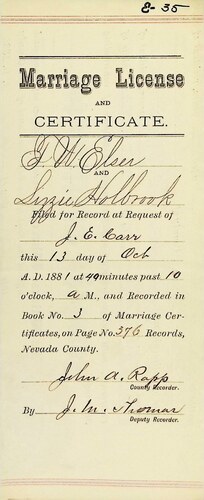 E-35
Marriage License
AND
CERTIFICATE.
F. W. Elser
AND
Lizzie Holbrook
Filed for Record at Request of
J. E. Carr
this 13 day of Oct
A. D. 1881 at 40 minutes past 10
o'clock, a M., and Recorded in
Book No. 3 of Marriage Cer-
tificates, on Page No. 376 Records,
Nevada County.
John A. Rapp
County Recorder.
By J. M. Thomas
Deputy Recorder.